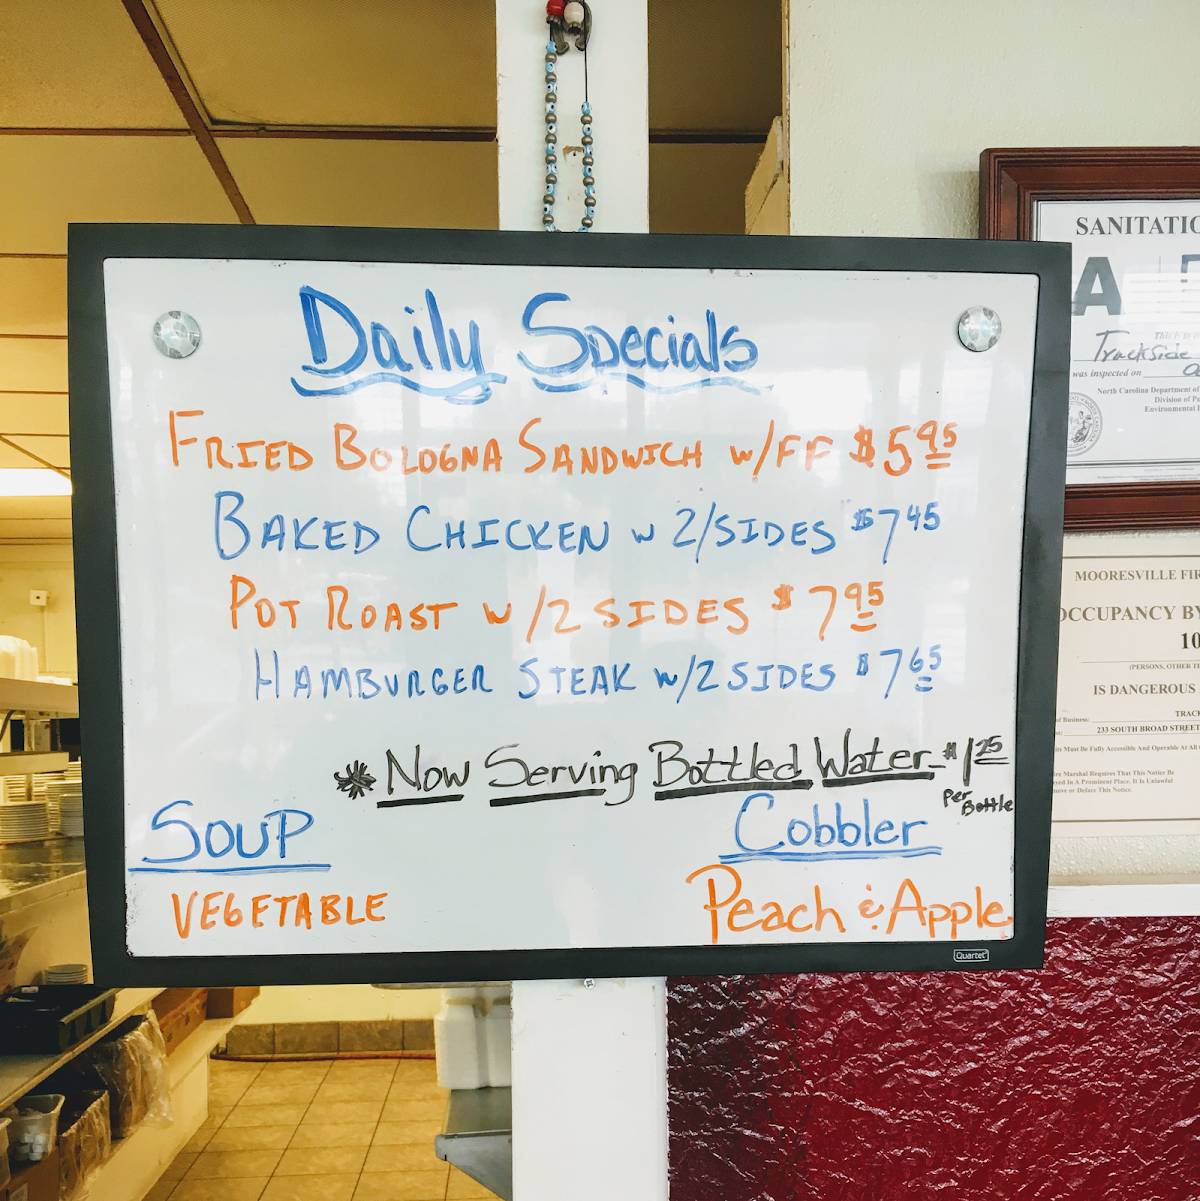 Daily Specials
FRIED BOLOGNA SANDWICH W/FF $5.95
BAKED CHICKEN W 2/SIDES $7.45
POT ROAST W/2 SIDES $7.95
HAMBURGER STEAK W/2 SIDES $7.65
* Now Serving Bottled Water $1.25
Per Bottle
SOUP
VEGETABLE
Cobbler
Peach & Apple
Quartet
SANITATIO
A
Trackside
was inspected on
North Carolina Department of
Division of
Environmental
MOORESVILLE FIR
OCCUPANCY BY
10
(PERSONS, OTHER
IS DANGEROUS
of Business: TRACK
233 SOUTH BROAD STREET
Must Be Fully Accessible And Operable At All
Marshal Requires That This Notice Be
In A Prominent Place. It Is Unlawful
or Deface This Notice.